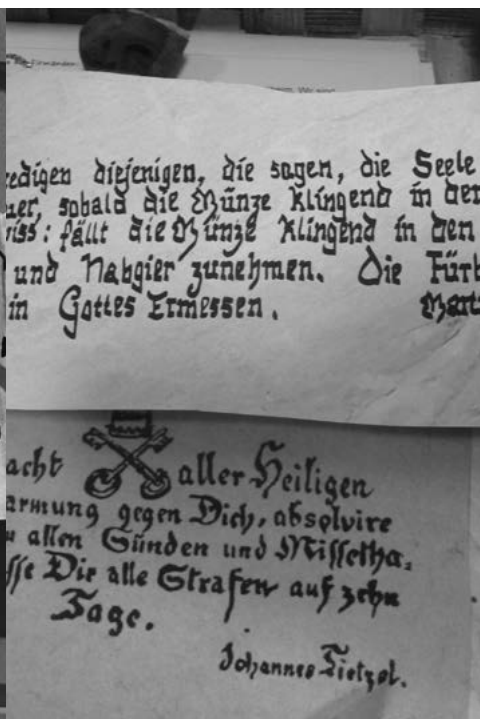 redigen diejenigen, die sagen, die Seele
sobald die Münze klingend in der
fällt die Münze klingend in den
und Habgier zunehmen. Die Fürb
in Gottes Ermessen. Mart
acht aller Heiligen
armung gegen Dich, absolvire
allen Sünden und Missetha-
sse Dir alle Strafen auf zehn
Tage.
Johannes Tietzel.